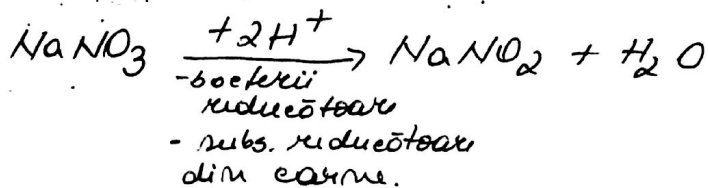 NaNO₃ +2H⁺ → NaNO₂ + H₂O
-bacterii
reducătoare
- subs. reducătoare
din carne.